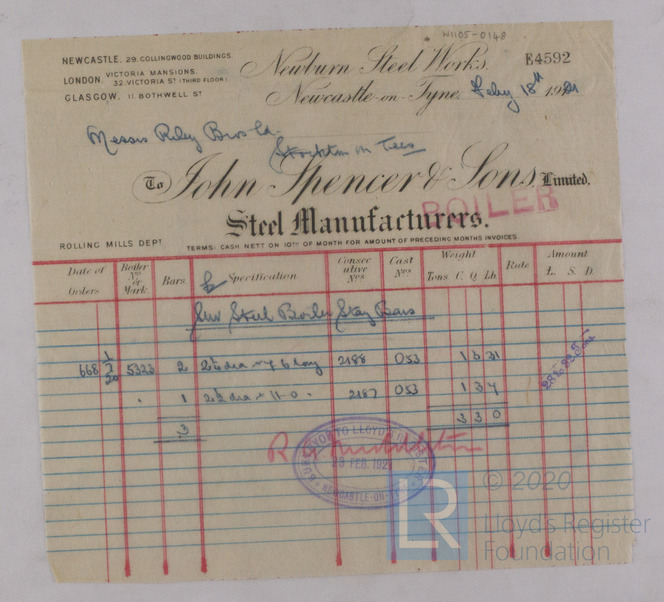 W1105-0148
NEWCASTLE, 29. COLLINGWOOD BUILDINGS.
LONDON, VICTORIA MANSIONS, 32, VICTORIA ST (THIRD FLOOR)
GLASGOW, 11. BOTHWELL ST
Newburn Steel Works.
E4592
Newcastle-on-Tyne, Feby 18th 1921
Messrs Riley Bros Ld.
Stockton on Tees
To John Spencer & Sons, Limited.
BOILER
Steel Manufacturers.
ROLLING MILLS DEPT
TERMS: CASH NETT ON 10TH OF MONTH FOR AMOUNT OF PRECEDING MONTHS INVOICES
Date of Orders Boiler Nos or Mark. Bars Specification Consecutive Nos Cast Nos Weight Tons C. Q. Lb. Rate Amount L. S. D.
Steel Boiler Stay Bars
668 5323 2 dia 6 long 2188 053 1 3 21
1 dia x 11-0 2187 053 1 3 7
3 3 3 0
28 to 32.5
SURVEYOR TO LLOYD'S REGISTER
FEB. 1921
NEWCASTLE-ON-TYNE
LR
© 2020
Lloyd's Register
Foundation